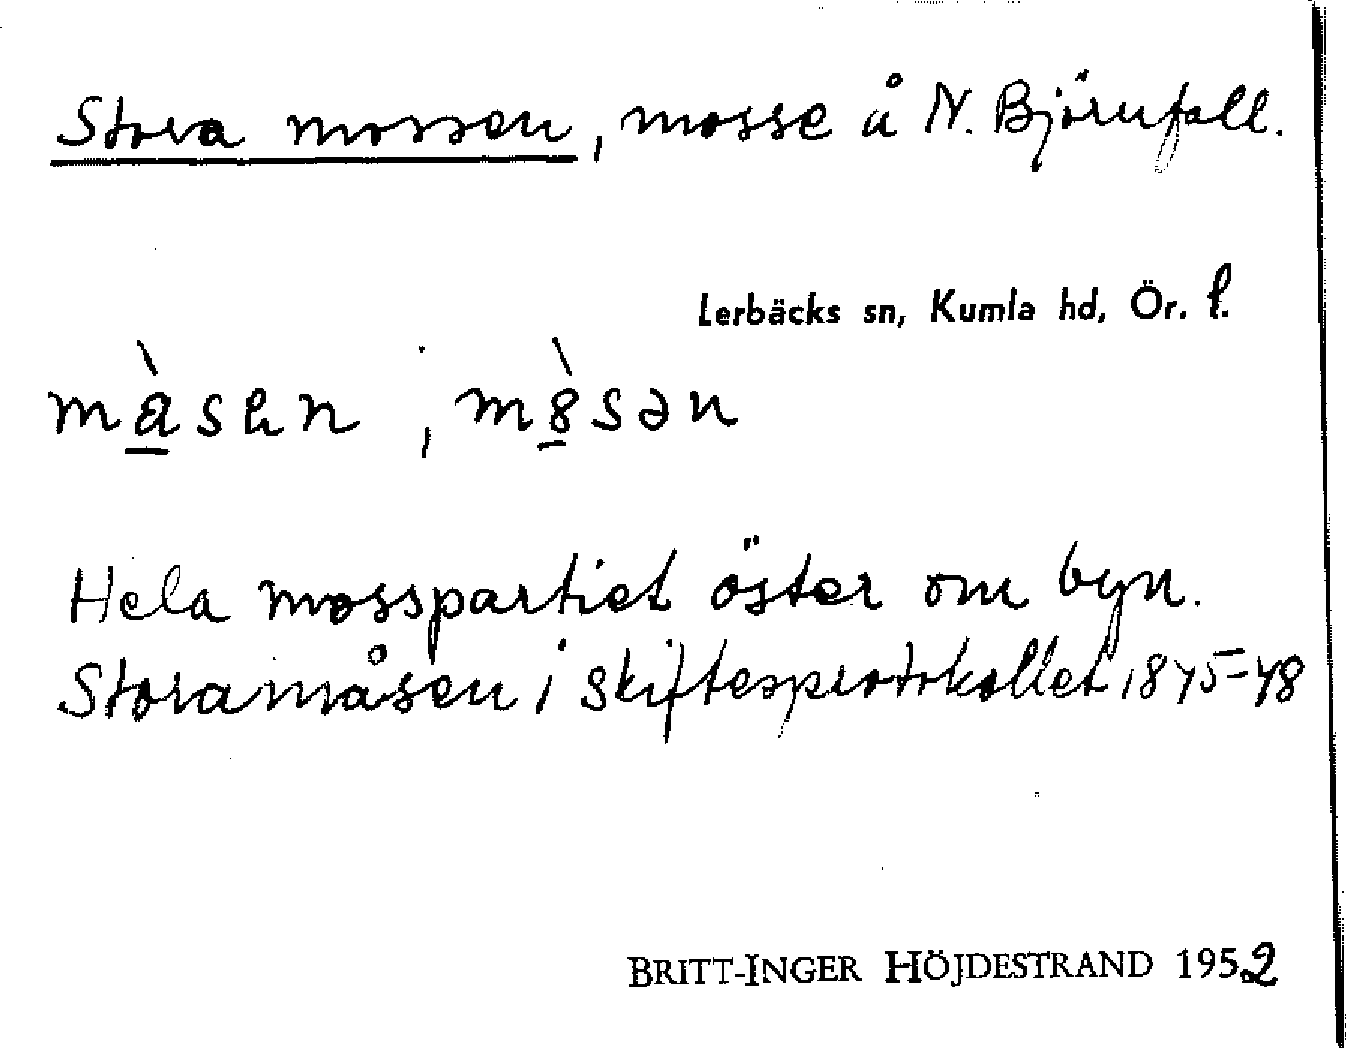 Stora mossen, mosse å N. Björnfall.
Lerbäcks sn, Kumla hd, Ör. l.
Hela mosspartiet öster om byn.
Storamåsen i skiftesprotokollet 1845-48
BRITT-INGER HÖJDESTRAND 1952